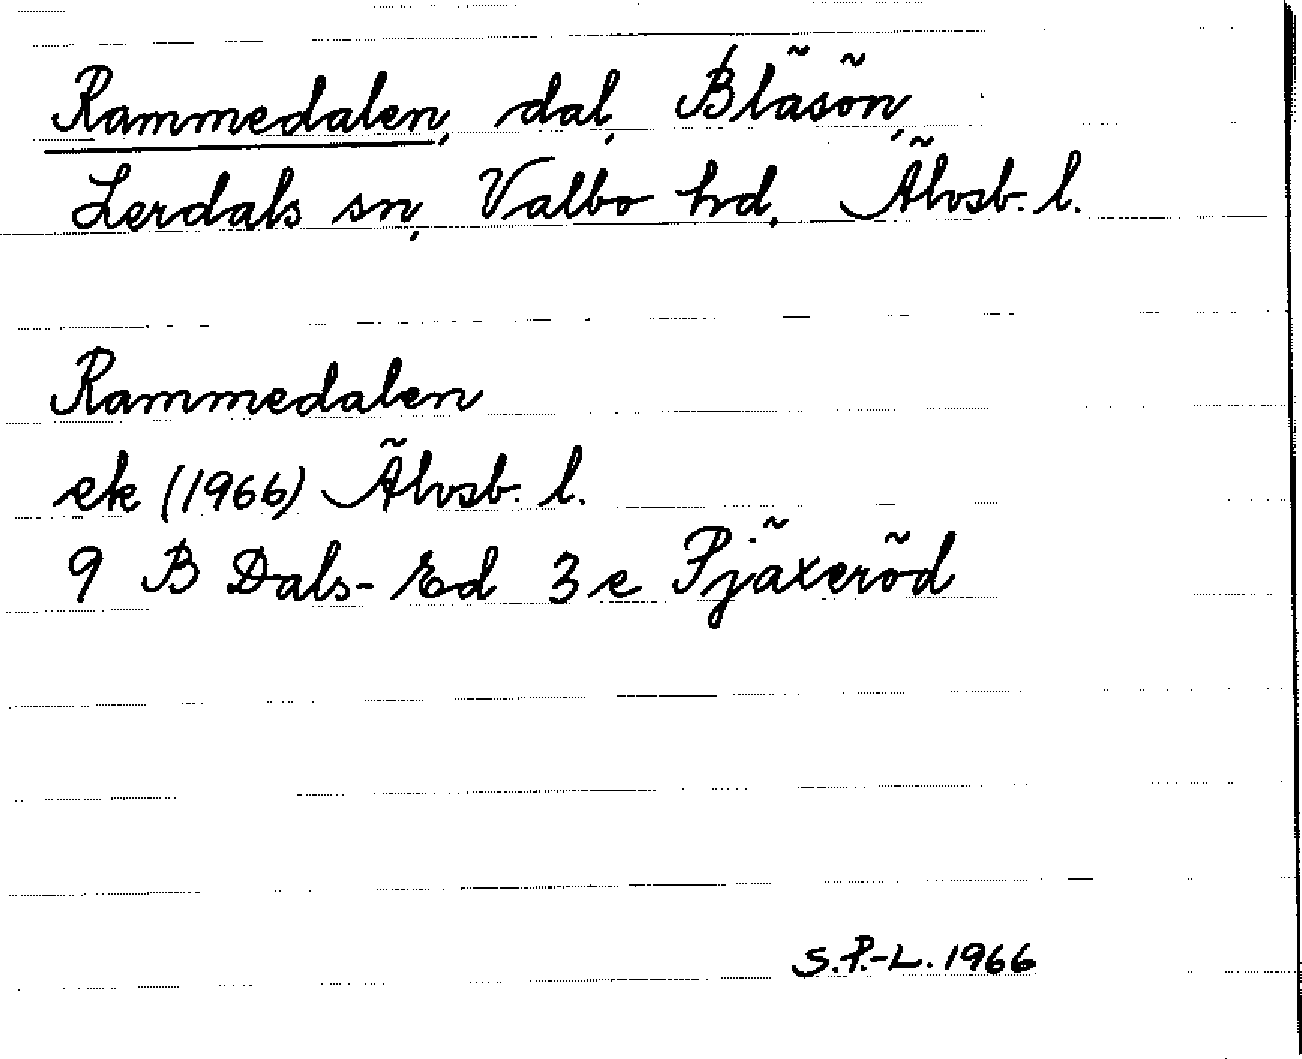 Rammedalen, dal, Bläsön,
Lerdals sn, Valbo hd, Älvsb. l.
Rammedalen
ek (1966) Älvsb. l.
9 B Dals-Ed 3 e Pjäxeröd
S.P.-L. 1966